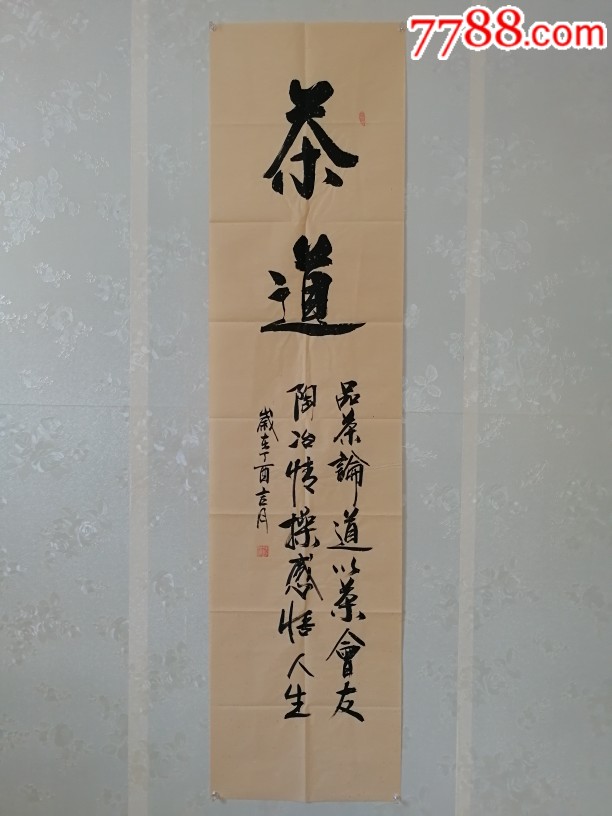 7788.com
茶
道
品茶論道以茶會友
陶冶情操感悟人生
歲在丁酉言月